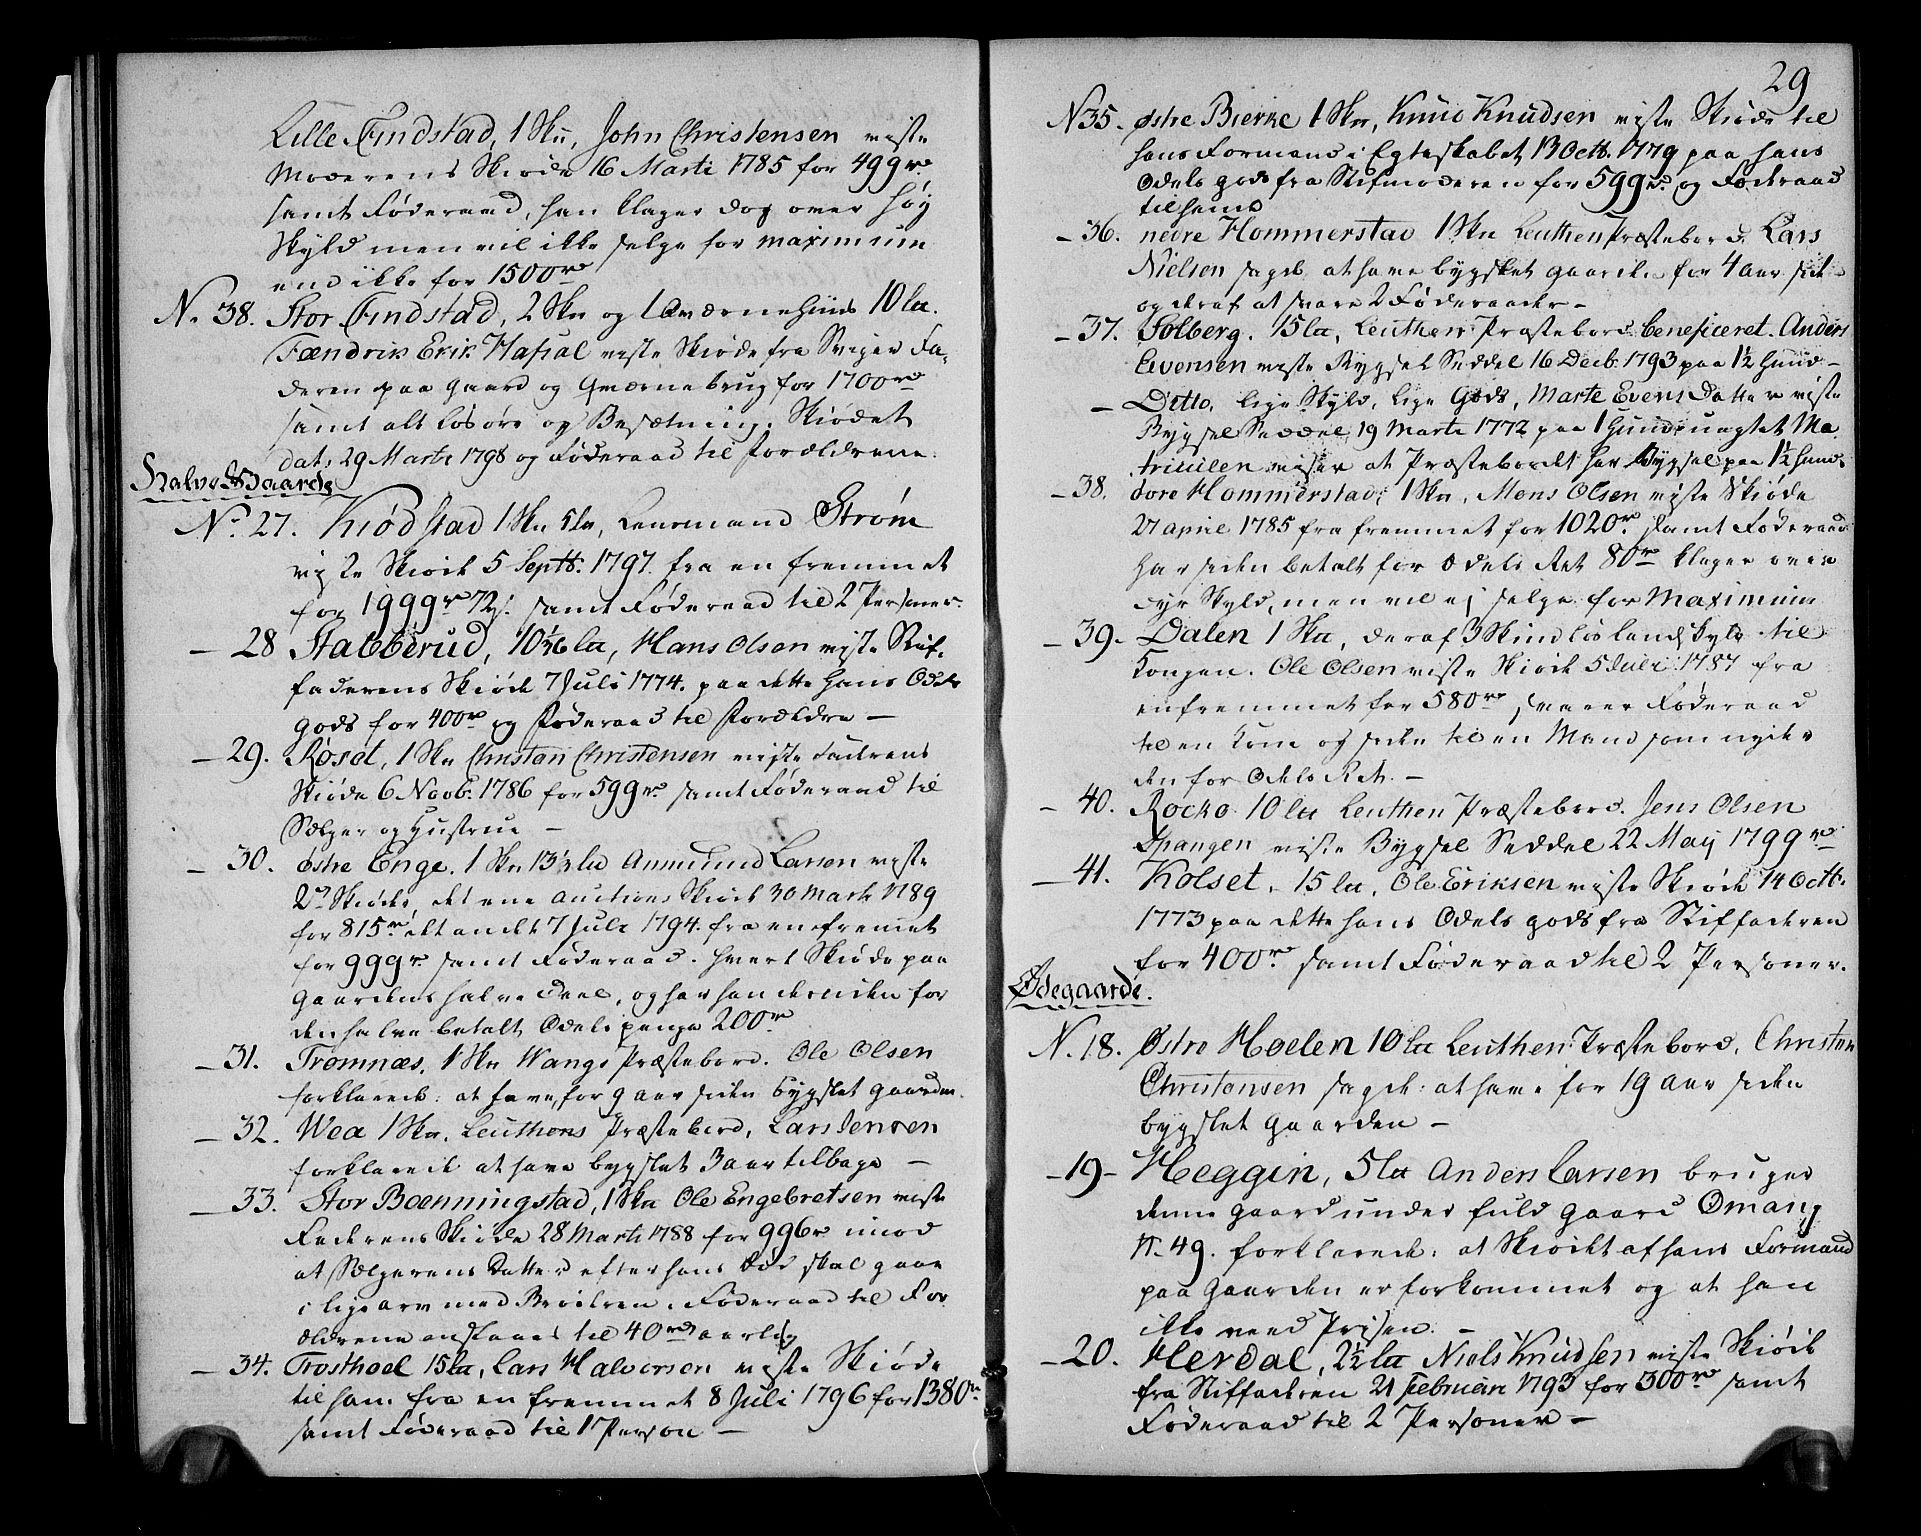 Lille Findstad, 1 Skn, John Christensen viste
Moderens Skiøde 16 Marti 1785 for 499 rd
samt Føderaad, han klager dog over høy
Skyld men vil ikke selge for maximum
end ikke for 1500 rd
N. 38. Stor Findstad, 2 Skn og 1 Qværnehuus 10 la.
Fændrik Erik Hafsal viste Skiøde fra Sviger Fa-
deren paa Gaard og Qværnebrug for 1700 rd
samt alt Løsøre og Besætning. Skiødet
dat: 29 Marti 1798 og Føderaad til Forældrene.
Halve Gaarde
N. 27. Kiødstad 1 Skn 5 la, Lensmand Strøm
viste Skiøde 5 Septb. 1797. fra en fremmet
for 1999 rd 72 s. samt Føderaad til 2 Personer.
- 28 Stabberud, 10 1/6 la, Hans Olsen viste Stif-
faderens Skiøde 7 Juli 1774. paa dette hans Odels
gods for 400 rd og Føderaad til Forældre -
- 29. Roset, 1 Skn Christan Christensen viste Faderens
Skiøde 6 Novb. 1786 for 599 rd samt Føderaad til
Sælger og Hustrue -
- 30. østre Enge. 1 Skn 13 1/2 la Anmund Larsen viste
2de Skiøder, det ene Auctions Skiøde 30 Marti 1789
for 815 rd det andet 7 Juli 1794. fra en fremmet
for 999 rd samt Føderaad. hvert Skiøde paa
Gaardens halve Deel, og har han desuden for
den halve betalt Odels penge 200 rd
- 31. Tromnæs, 1 Skn Wangs Præstebord. Ole Olsen
forklarede: at have for 9 aar siden bygslet gaarden.
- 32. Wea 1 Skn. Leuthens Præstebord, Lars Jensen
forklarede at have bygslet 3 aar tilbage -
- 33. Stor Boenningstad, 1 Skn Ole Engebretsen viste
Faderens Skiøde 28 Marti 1788 for 996 rd imod
at Sælgerens Datter efter hans Død skal gaae
i lige arv med Brødren. Føderaad til For
ældrene anslaaes til 40 rd aarlig
- 34. Trosthoel 15 la, Lars Halvorsen viste Skiøde
til ham fra en fremmet 8 Juli 1796 for 1380 rd
samt Føderaad til 1 Person -
29
N 35. østre Bierke 1 Skn, Knud Knudsen viste Skiøde til
hans Formand i Egteskabet 13 Octb. 1779 paa hans
Odels gods fra Stifmoderen for 599 rd og Føderaad
til hende
- 36. nedre Hommerstad 1 Skn Leuthen Præstebord. Lars
Nielsen sagde at have bygslet gaarden for 4 aar siden
og deraf at svare 2 Føderaader -
- 37. Solberg. 15 la, Leuthen Præstebord beneficeret. Anders
Evensen viste Bygsel Seddel 16 Decb. 1793 paa 1 1/2 Huud -
- Ditto, lige Skyld, lige Gods, Marte Evens Datter viste
Bygsel Seddel 19 Marti 1772 paa 1 Huud, uagtet Ma-
triculen viser at Præstebordet har Bygsel paa 1 1/2 Huud.
- 38. søre Hommerstad, 1 Skn, Mons Olsen viste Skiøde
27 april 1785 fra fremmet for 1020 rd samt Føderaad
har siden betalt for Odels Ret 80 rd klager over
dyr Skyld, men vil ej selge for Maximum
- 39. Dalen 1 Skn, deraf 3 Skind los Landskyld til
Kongen. Ole Olsen viste Skiøde 5 Juli 1787 fra
en fremmet for 580 rd, svarer Føderaad
til en Kone og siden til en Mand som nyder
den for Odels Ret. -
- 40. Rocko 10 la Leuthen Præstebord. Jens Olsen
Spangen viste Bygsel Seddel 22 Maij 1799
- 41. Kolset. 15 la, Ole Eriksen viste Skiøde 14 Octb.
1773 paa dette hans Odels gods fra Stiffaderen
for 400 rd samt Føderaad til 2 Personer.
Ødegaarde.
N. 18. Østre Hoelen 10 la Leuthen Præstebord, Christen
Christensen sagde: at have for 19 aar siden
bygslet gaarden -
- 19 - Heggin, 5 la Anders Larsen bruger
denne gaard under fuld gaard Omang
N. 49. forklarede: at Skiødet af hans Formand
paa Gaarden er forkommet og at han
ikke veed Prisen. -
- 20. Herdal, 2 1/2 la Niels Knudsen viste Skiøde
fra Stiffaderen 21 Februari 1793 for 300 rd samt
Føderaad til 2 Personer -